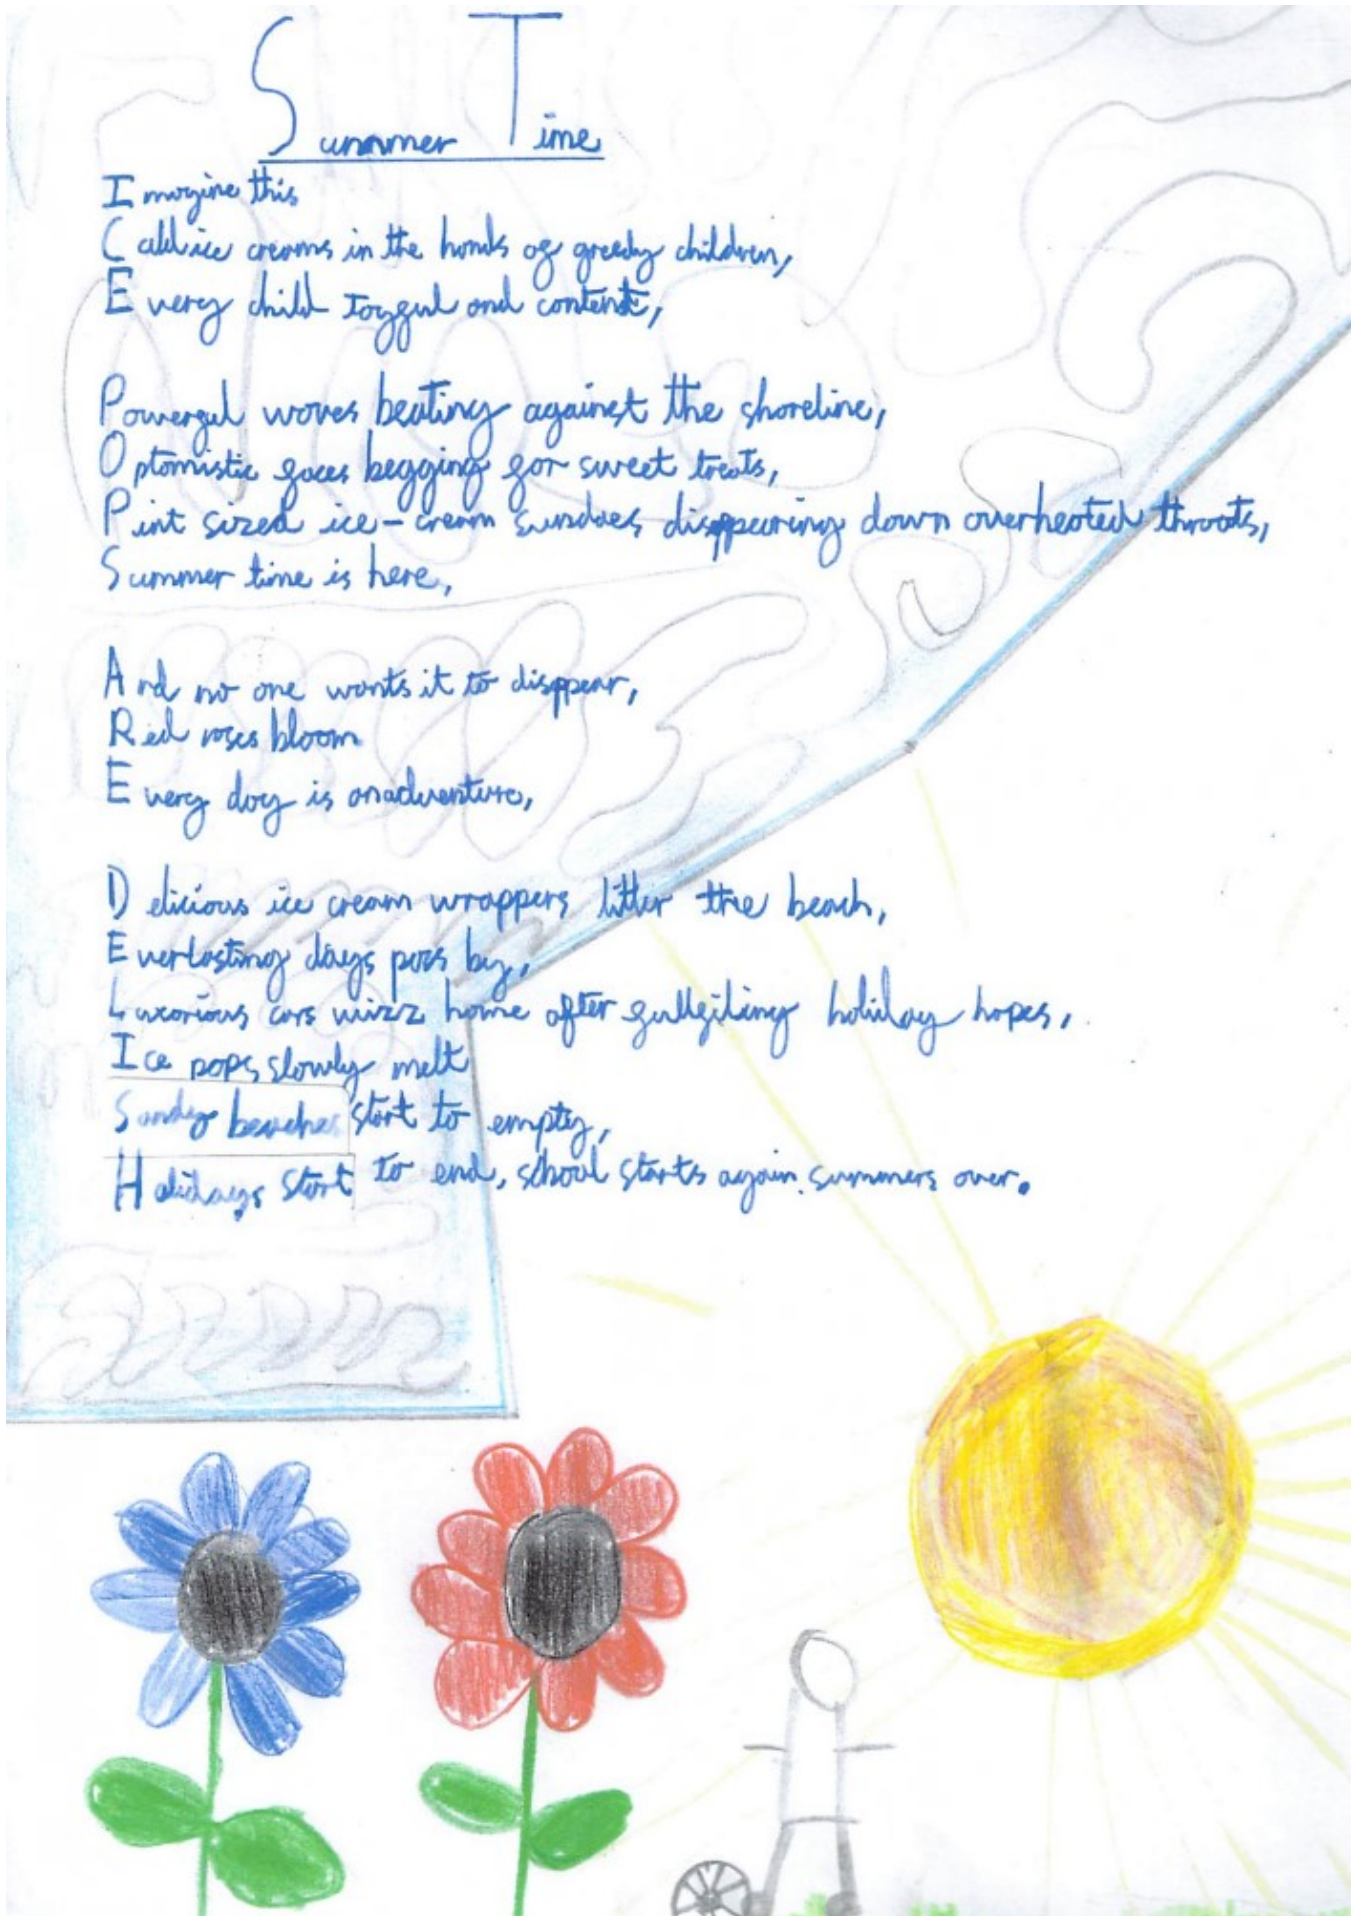 Summer Time
Imagine this
Cold ice creams in the hands of greedy children,
Every child Joyful and content,
Powerful waves beating against the shoreline,
Optomistic faces begging for sweet treats,
Pint sized ice-cream sundaes disppearing down overheated throats,
Summer time is here,
And no one wants it to disppear,
Red roses bloom
Every day is an adventure,
Delicious ice cream wrappers litter the beach,
Everlasting days pass by,
Luxorious cars wizz home after fullfilling holiday hopes,
Ice pops slowly melt
Sandy beaches start to empty,
Holidays start to end, school starts again. summers over.